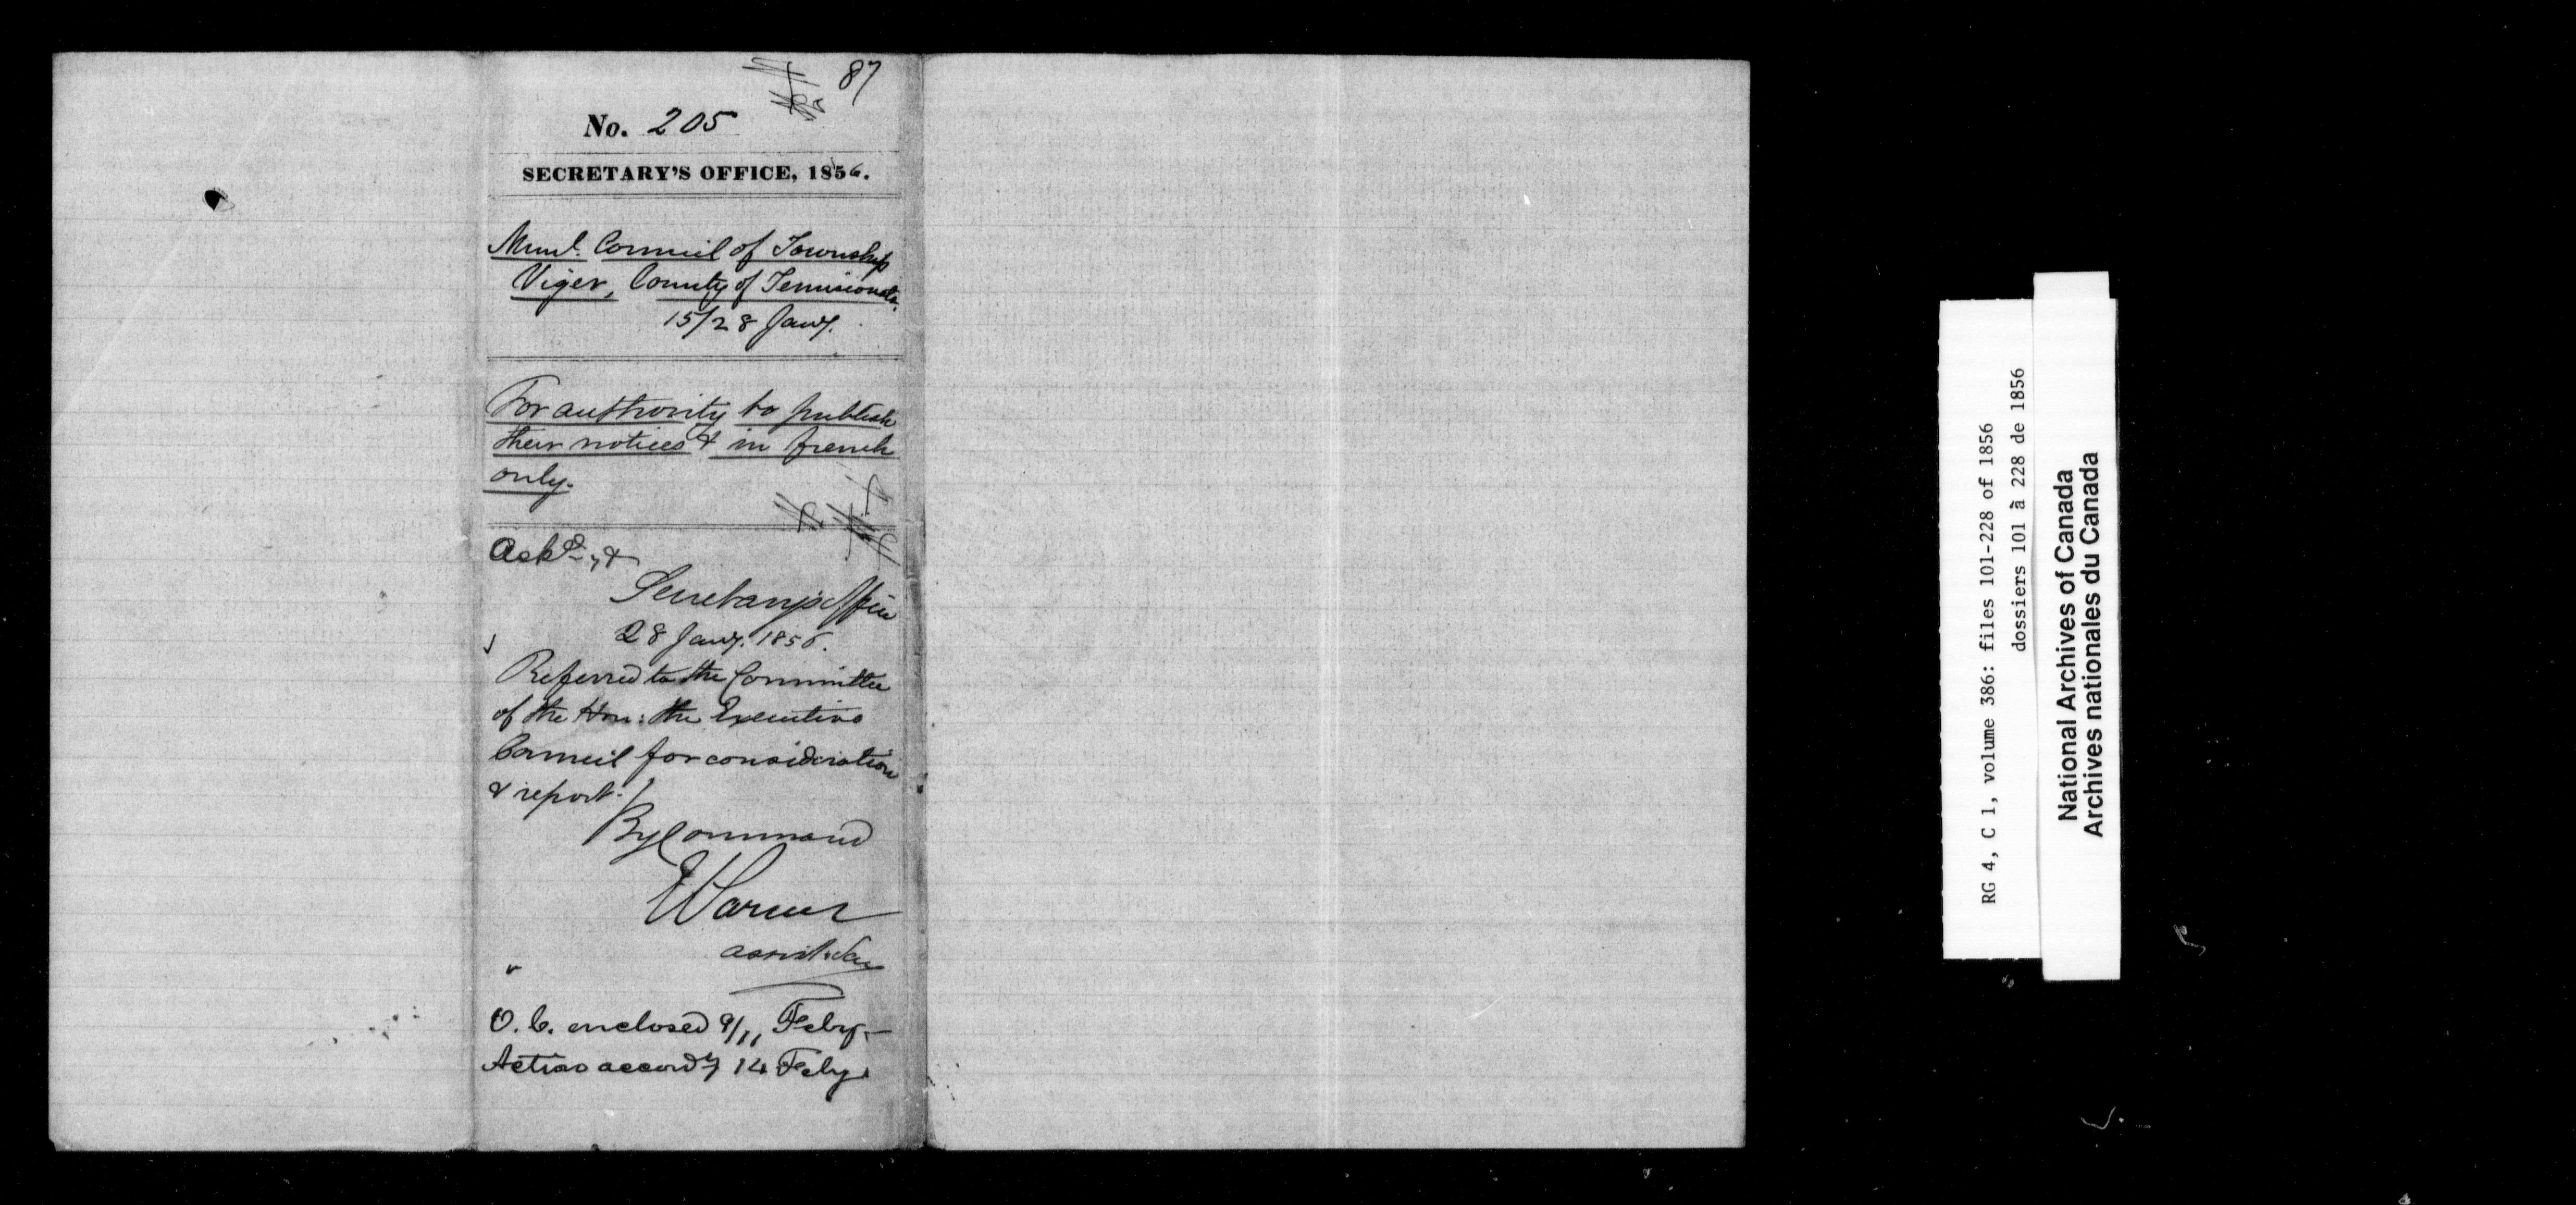 87
No. 205
SECRETARY'S OFFICE, 1856.
Munl. Council of Township
Viger, County of Temiscouata.
15/28 Jany.
For authority to publish
their notices & in french
only.
Ackd., &
Secretary's Office
28 Jany. 1856.
Referred to the Committee
of the Hon: the Executive
Council for consideration
& report.
By Command
assist. Secy
O. C. enclosed 9/11 Feby
Action accordy 14 Feby
RG 4, C 1, volume 386: files 101-228 of 1856
dossiers 101 à 228 de 1856
National Archives of Canada
Archives nationales du Canada